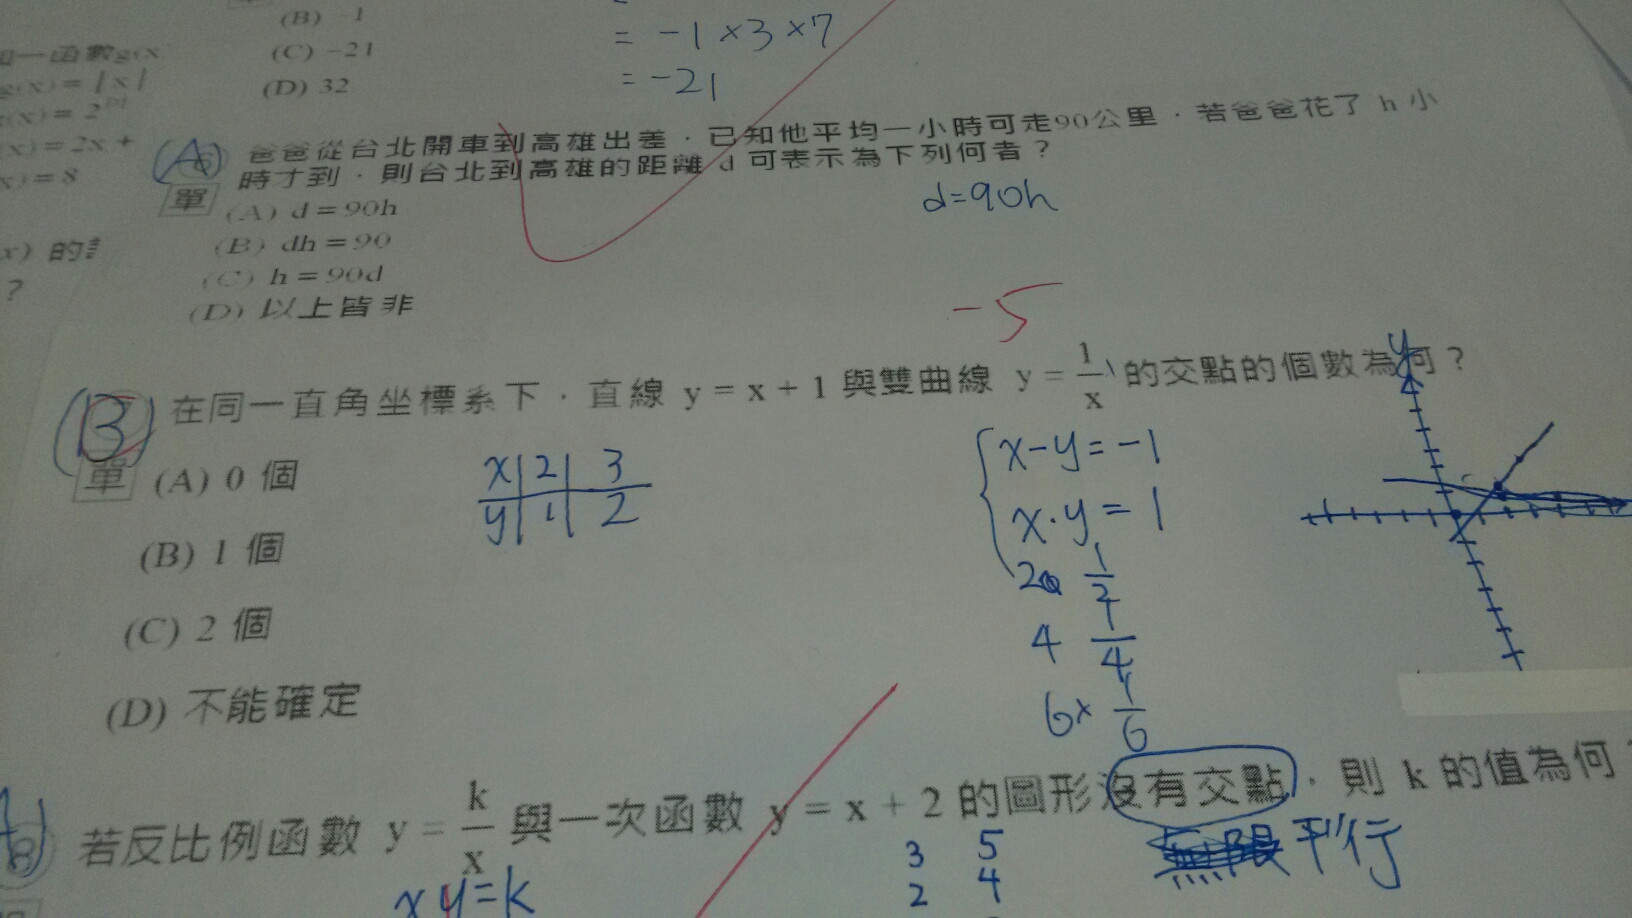 (B) -1
= -1×3×7
(C) -21
= -21
(D) 32
和一函數g(x
g(x)=|x|
(x)=2x+
x)=8
x) 的
?
(A)
爸爸從台北開車到高雄出差．已知他平均一小時可走90公里．若爸爸花了 h 小
時才到．則台北到高雄的距離 d 可表示為下列何者？
單
d=90h
(A) d=90h
(B) dh=90
(C) h=90d
(D) 以上皆非
-5
(B) 在同一直角坐標系下．直線 y=x+1 與雙曲線 y=1/x 的交點的個數為何？
單
(A) 0 個
(B) 1 個
(C) 2 個
(D) 不能確定
x 2 3
y 1 2
x-y=-1
x·y=1
2 1/2
4 1/4
6× 1/6
y
若反比例函數 y=k/x 與一次函數 y=x+2 的圖形沒有交點．則 k 的值為何？
xy=k
3 5
2 4
平行